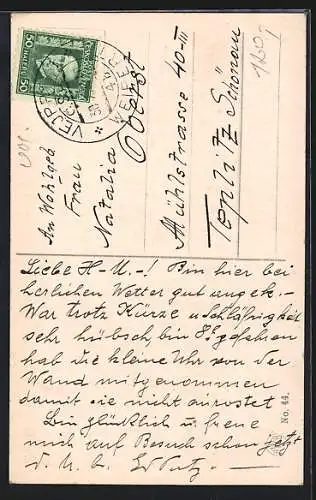 50 50
VEJPRTY
WEIPERT
1160
An Wohlgeb
Frau
Natalia Oberst
Mühlstrasse 40-III
Teplitz Schönau
Liebe H-U.-! Bin hier bei
herlichen Wetter gut angek.-
War trotz Kürze u Schläfrigkeit
sehr hübsch, bin gefahren
hab die kleine Uhr von der
Wand mitgenommen
damit sie nicht ausrostet
Bin glücklich u. freue
mich auf Besuch schon jetzt
No. 44.